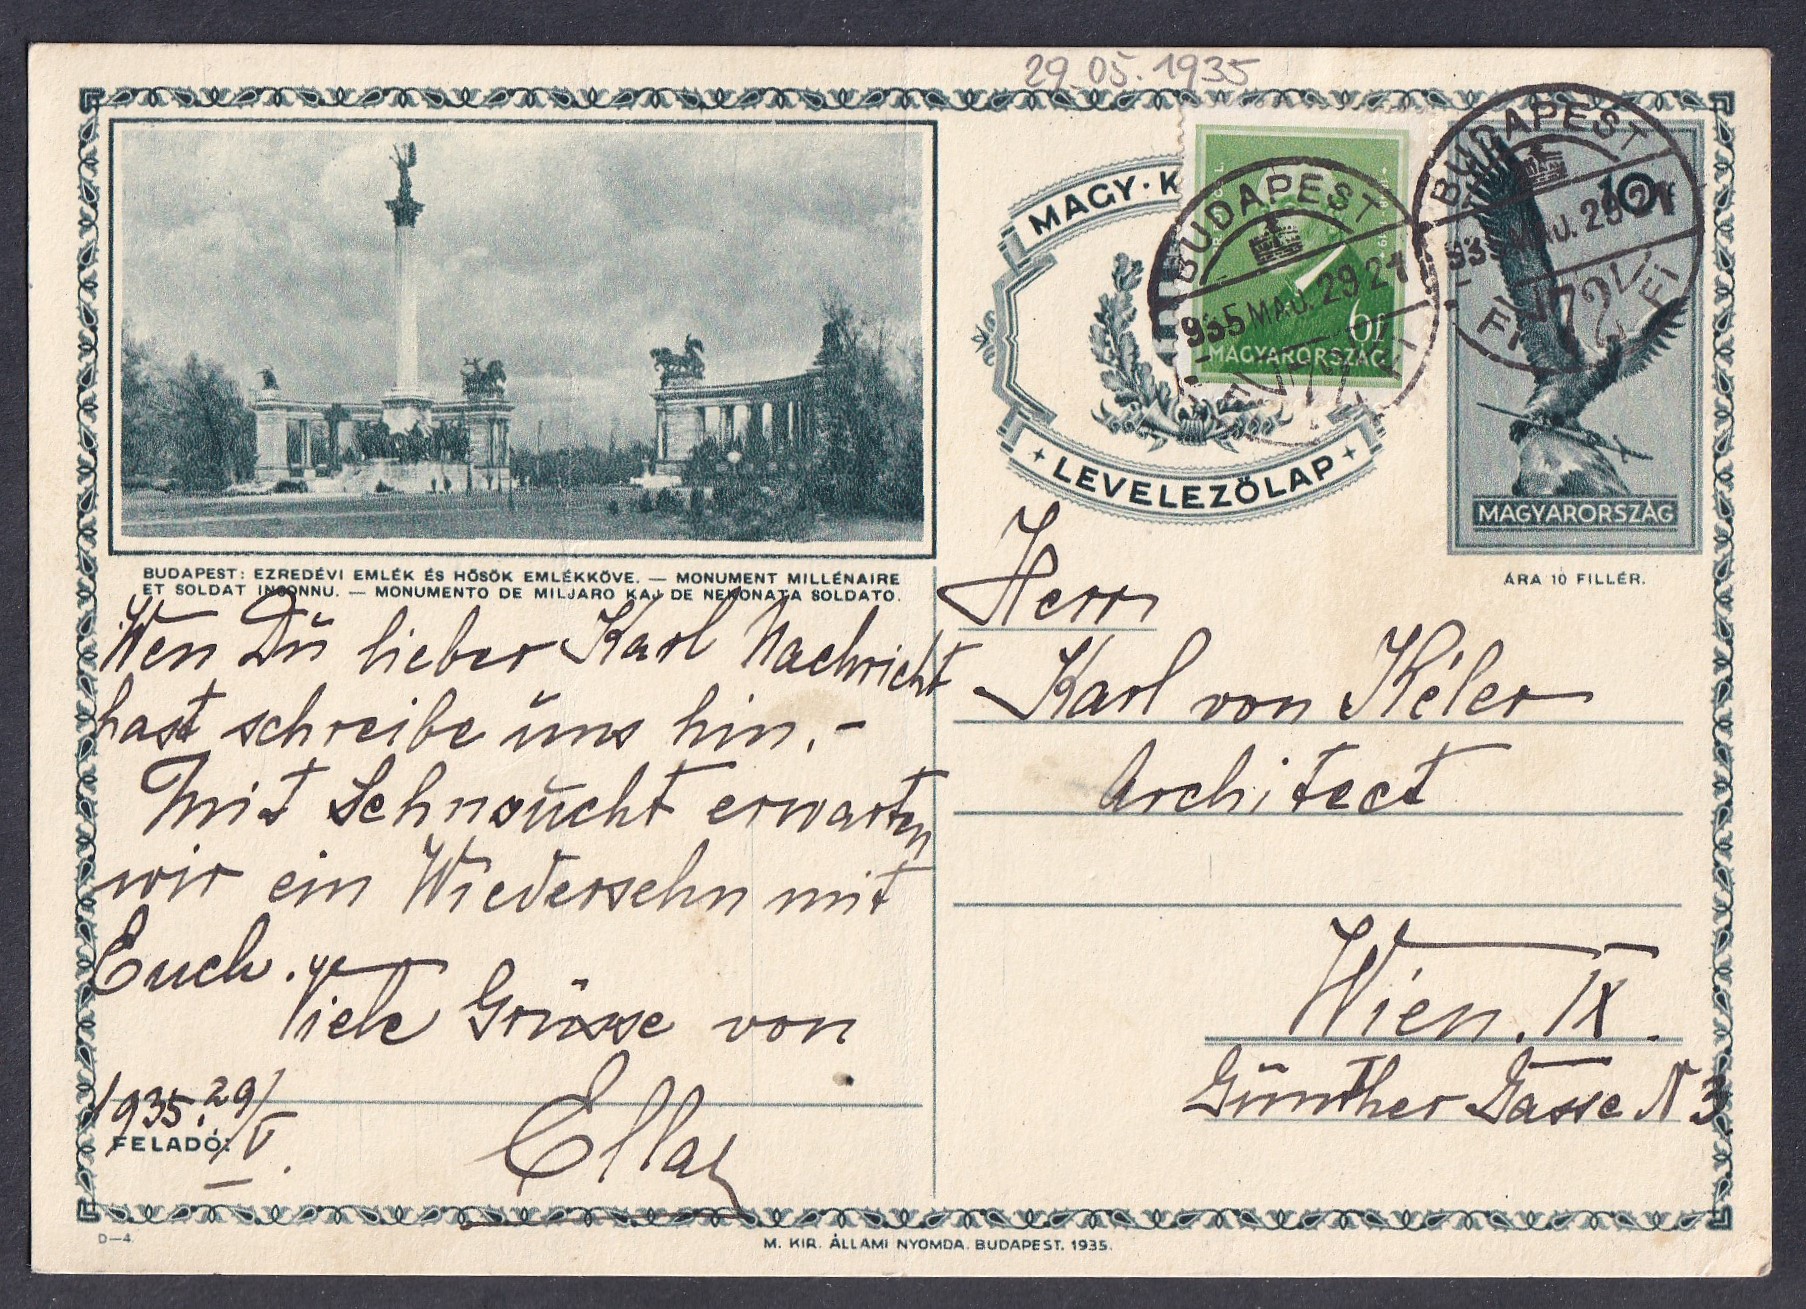 29.05.1935
MAGY. K
LEVELEZŐLAP
BUDAPEST
935 MÁJ. 29 21
72
FI FI
6f
MAGYARORSZÁG
BUDAPEST
935 MÁJ. 29 21
72
FI FI
10f
MAGYARORSZÁG
ÁRA 10 FILLÉR.
BUDAPEST: EZREDÉVI EMLÉK ÉS HŐSÖK EMLÉKKÖVE. — MONUMENT MILLÉNAIRE
ET SOLDAT INCONNU. — MONUMENTO DE MILJARO KAJ DE NEKONATA SOLDATO.
Wen Du lieber Karl Nachricht
hast schreibe uns hin. –
Mit Sehnsucht erwarten
wir ein Wiedersehn mit
Euch. Viele Grüsse von
Ella
1935. 29/V.
FELADÓ:
Herr
Karl von Kéler
Architect
Wien. IX.
Günther Gasse N 3.
D—4.
M. KIR. ÁLLAMI NYOMDA. BUDAPEST. 1935.